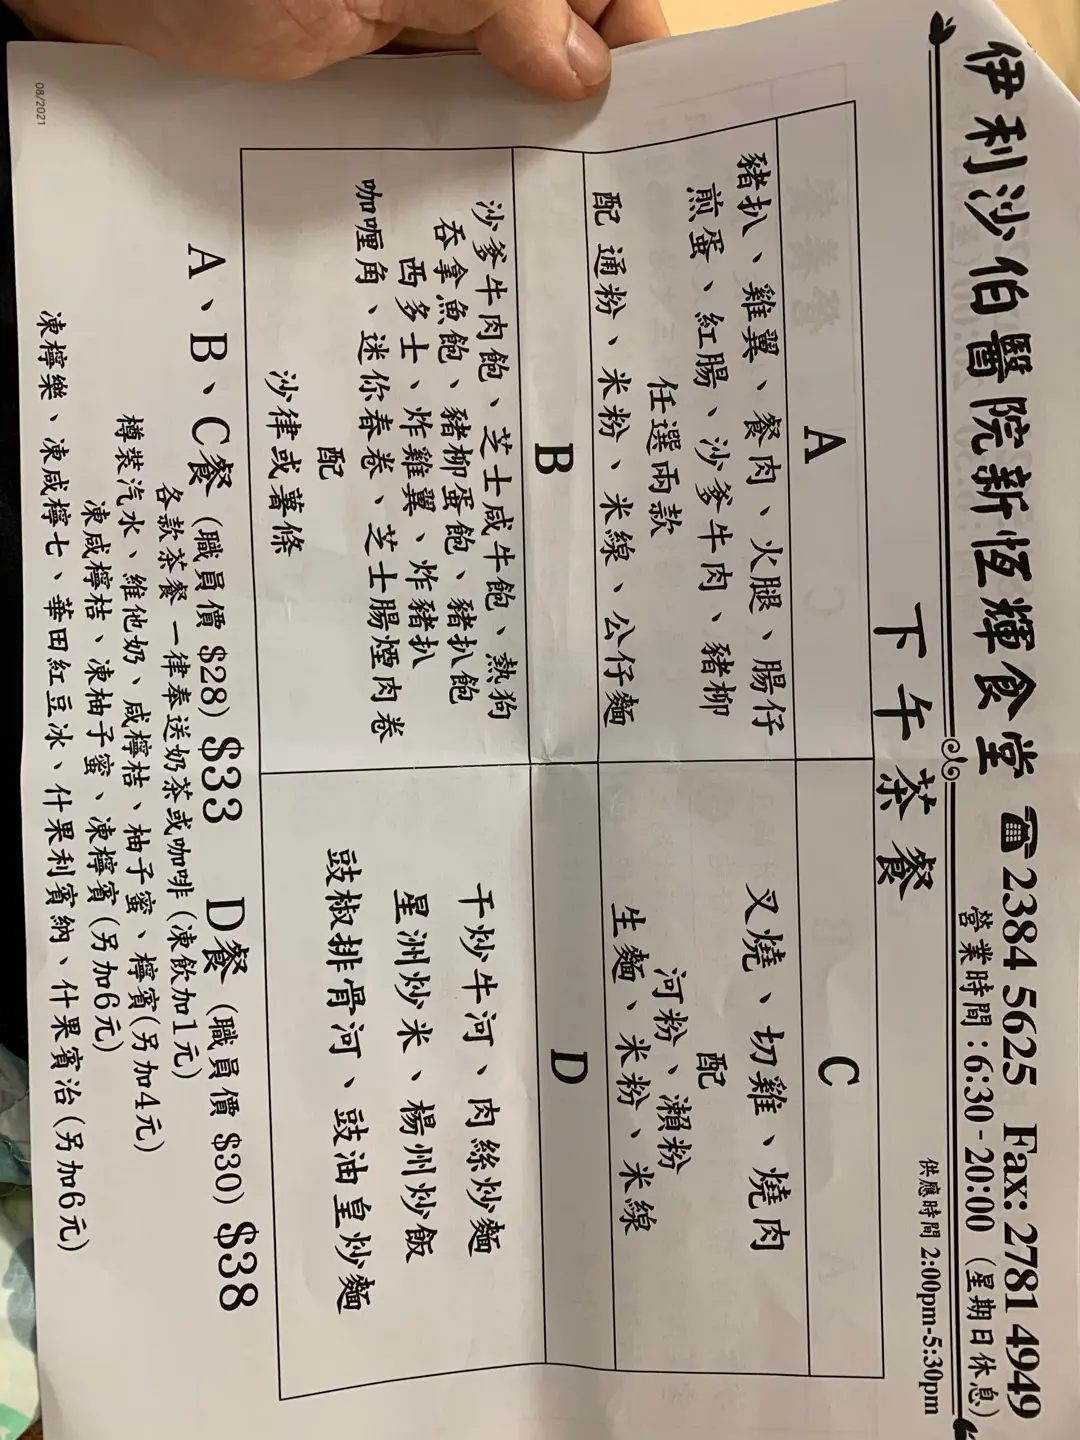 伊利沙伯醫院新恆輝食堂 ☎2384 5625 Fax: 2781 4949
營業時間：6:30-20:00（星期日休息）
下午茶餐
供應時間 2:00pm-5:30pm
A
豬扒、雞翼、餐肉、火腿、腸仔
煎蛋、紅腸、沙爹牛肉、豬柳
任選兩款
配 通粉、米粉、米線、公仔麵
C
叉燒、切雞、燒肉
配
河粉、瀨粉
生麵、米粉、米線
B
沙爹牛肉飽、芝士咸牛飽、熱狗
吞拿魚飽、豬柳蛋飽、豬扒飽
西多士、炸雞翼、炸豬扒
咖喱角、迷你春卷、芝士腸煙肉卷
配
沙律或薯條
D
干炒牛河、肉絲炒麵
星洲炒米、楊州炒飯
豉椒排骨河、豉油皇炒麵
A、B、C餐（職員價 $28）$33 D餐（職員價 $30）$38
各款茶餐一律奉送奶茶或咖啡（凍飲加1元）
樽裝汽水、維他奶、咸檸桔、柚子蜜、檸賓（另加4元）
凍咸檸桔、凍柚子蜜、凍檸賓（另加6元）
凍檸樂、凍咸檸七、華田紅豆冰、什果利賓納、什果賓治（另加6元）
08/2021